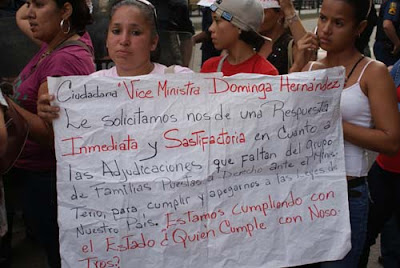 Ciudadana Vice Ministra Dominga Hernandez
Le solicitamos nos de una Respuesta
Inmediata y Sastifactoria en Cuanto a
las Adjudicaciones que faltan del Grupo
de Familias Puestas a Derecho ante el Minis-
Terio, para cumplir y apegarnos a las Leyes de
Nuestro País. Estamos cumpliendo con
el Estado ¿Quién Cumple con Noso-
Tros?